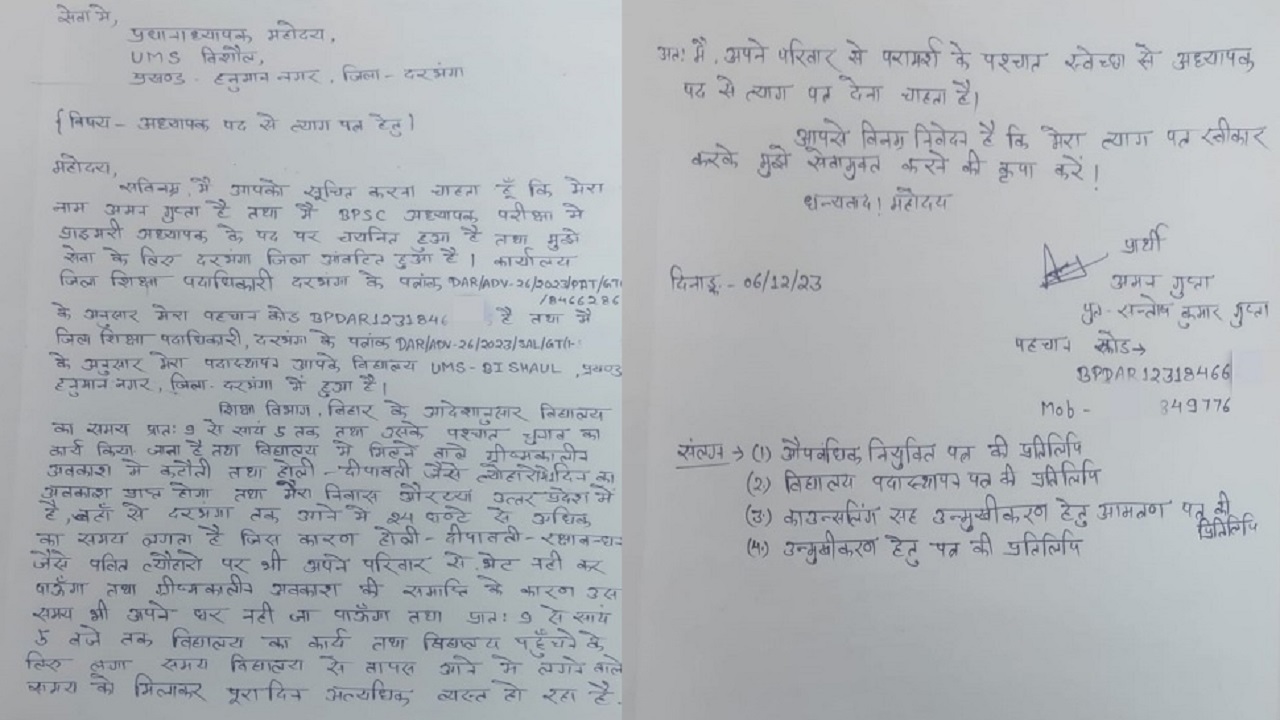 सेवा में,
प्रधानाध्यापक महोदय,
UMS विशौल,
प्रखण्ड - हनुमान नगर, जिला - दरभंगा
{विषय - अध्यापक पद से त्याग पत्र हेतु}
महोदय,
सविनम्र, मै आपको सूचित करना चाहता हूँ कि मेरा
नाम अमन गुप्ता है तथा मै BPSC अध्यापक परीक्षा मे
प्राइमरी अध्यापक के पद पर चयनित हुआ है तथा मुझे
सेवा के लिए दरभंगा जिला आंवटित हुआ है। कार्यालय
जिला शिक्षा पदाधिकारी दरभंगा के पत्रांक DAR/ADV-26/2023/PAT/GT
/8466286
के अनुसार मेरा पहचान कोड BPDAR1231846 है तथा मै
जिला शिक्षा पदाधिकारी, दरभंगा के पत्रांक DAR/ADV-26/2023/SAL/GT/1-
के अनुसार मेरा पदास्थापन आपके विद्यालय UMS-BISHAUL, प्रखण्ड
हनुमान नगर, जिला - दरभंगा में हुआ है।
शिक्षा विभाग, बिहार के आदेशानुसार विद्यालय
का समय प्रातः 9 से सायं 5 तक तथा उसके पश्चात चुनाव का
कार्य किया जाना है तथा विद्यालय मे मिलने वाले ग्रीष्मकालीन
अवकाश मे कटौती तथा होली - दीपावली जैसे त्योहारो दिन का
अवकाश प्राप्त होगा तथा मेरा निवास औरय्या उत्तर प्रदेश में
है, वहाँ से दरभंगा तक आने मे 24 घण्टे से अधिक
का समय लगता है जिस कारण होली - दीपावली - रक्षाबन्धन
जैसे पवित्र त्यौहारो पर भी अपने परिवार से भेट नही कर
पाऊँगा तथा ग्रीष्मकालीन अवकाश की समाप्ति के कारण उस
समय भी अपने घर नही जा पाऊँगा तथा प्रातः 9 से सायं
5 बजे तक विद्यालय का कार्य तथा विद्यालय पहुँचने के
लिए लगा समय विद्यालय से वापस आने मे लगने वाले
समय को मिलाकर पूरा दिन अत्यधिक व्यस्त हो रहा है.
अतः मै, अपने परिवार से परामर्श के पश्चात स्वेच्छा से अध्यापक
पद से त्याग पत्र देना चाहता है।
आपसे विनम्र निवेदन है कि मेरा त्याग पत्र स्वीकार
करके मुझे सेवामुक्त करने की कृपा करें!
धन्यवाद! महोदय
प्रार्थी
दिनाङ्क - 06/12/23
अमन गुप्ता
पुत्र - सन्तोष कुमार गुप्ता
पहचान कोड→
BPDAR12318466
Mob - 849776
संलग्न → (1) औपबंधिक नियुक्ति पत्र की प्रतिलिपि
(2) विद्यालय पदास्थापन पत्र की प्रतिलिपि
(3) काउन्सलिंग सह उन्मुखीकरण हेतु आमंत्रण पत्र की
प्रतिलिपि
(4) उन्मुखीकरण हेतु पत्र की प्रतिलिपि